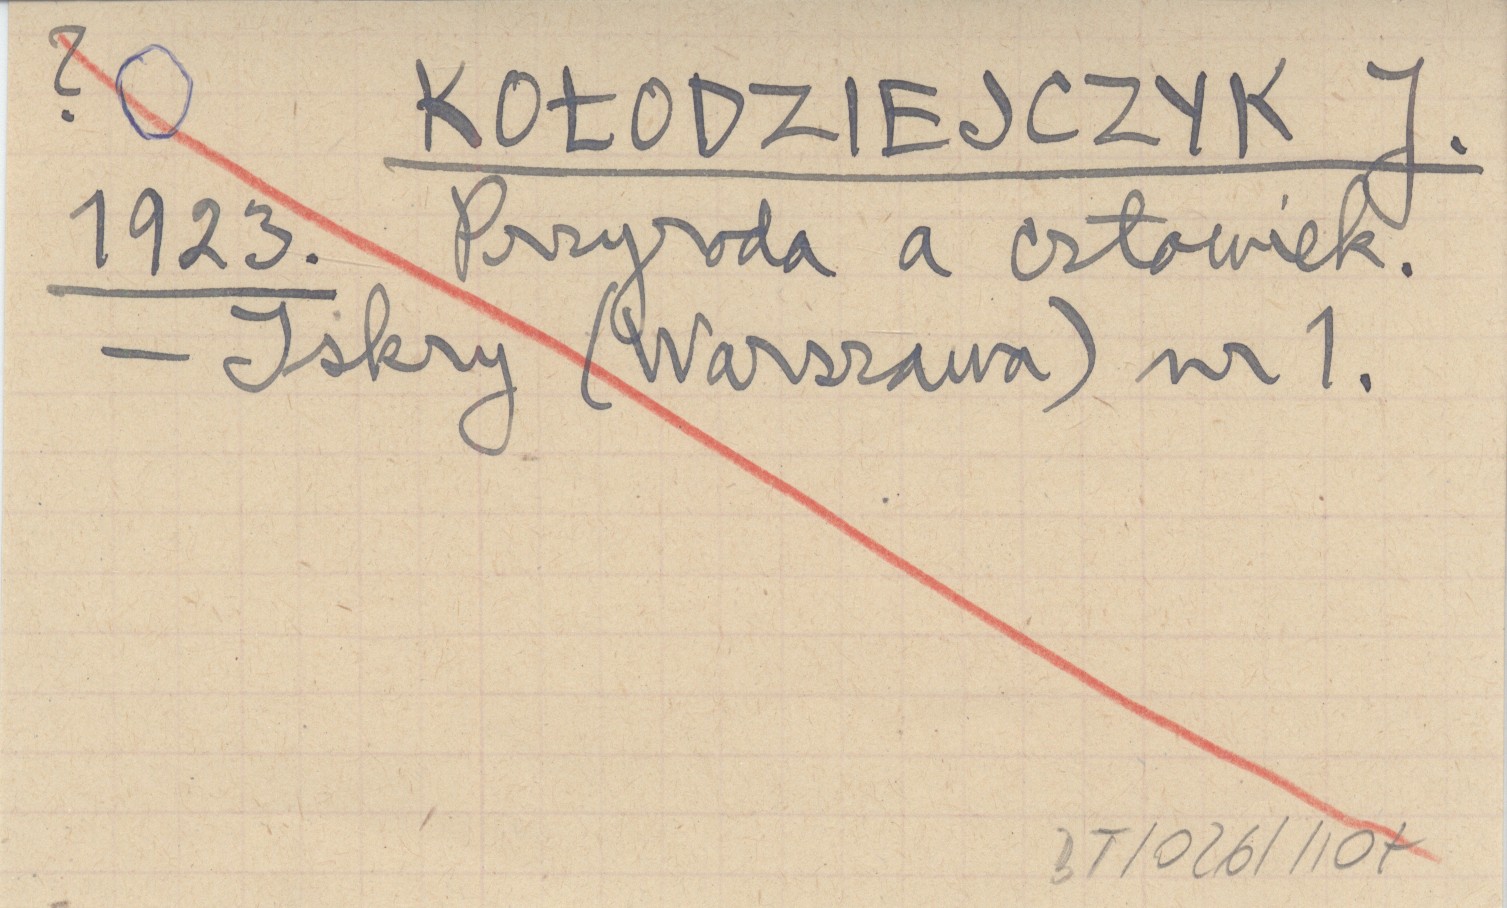 ? KOŁODZIEJCZYK J.
1923. Przyroda a człowiek.
— Iskry (Warszawa) nr 1.
BT/026/1107